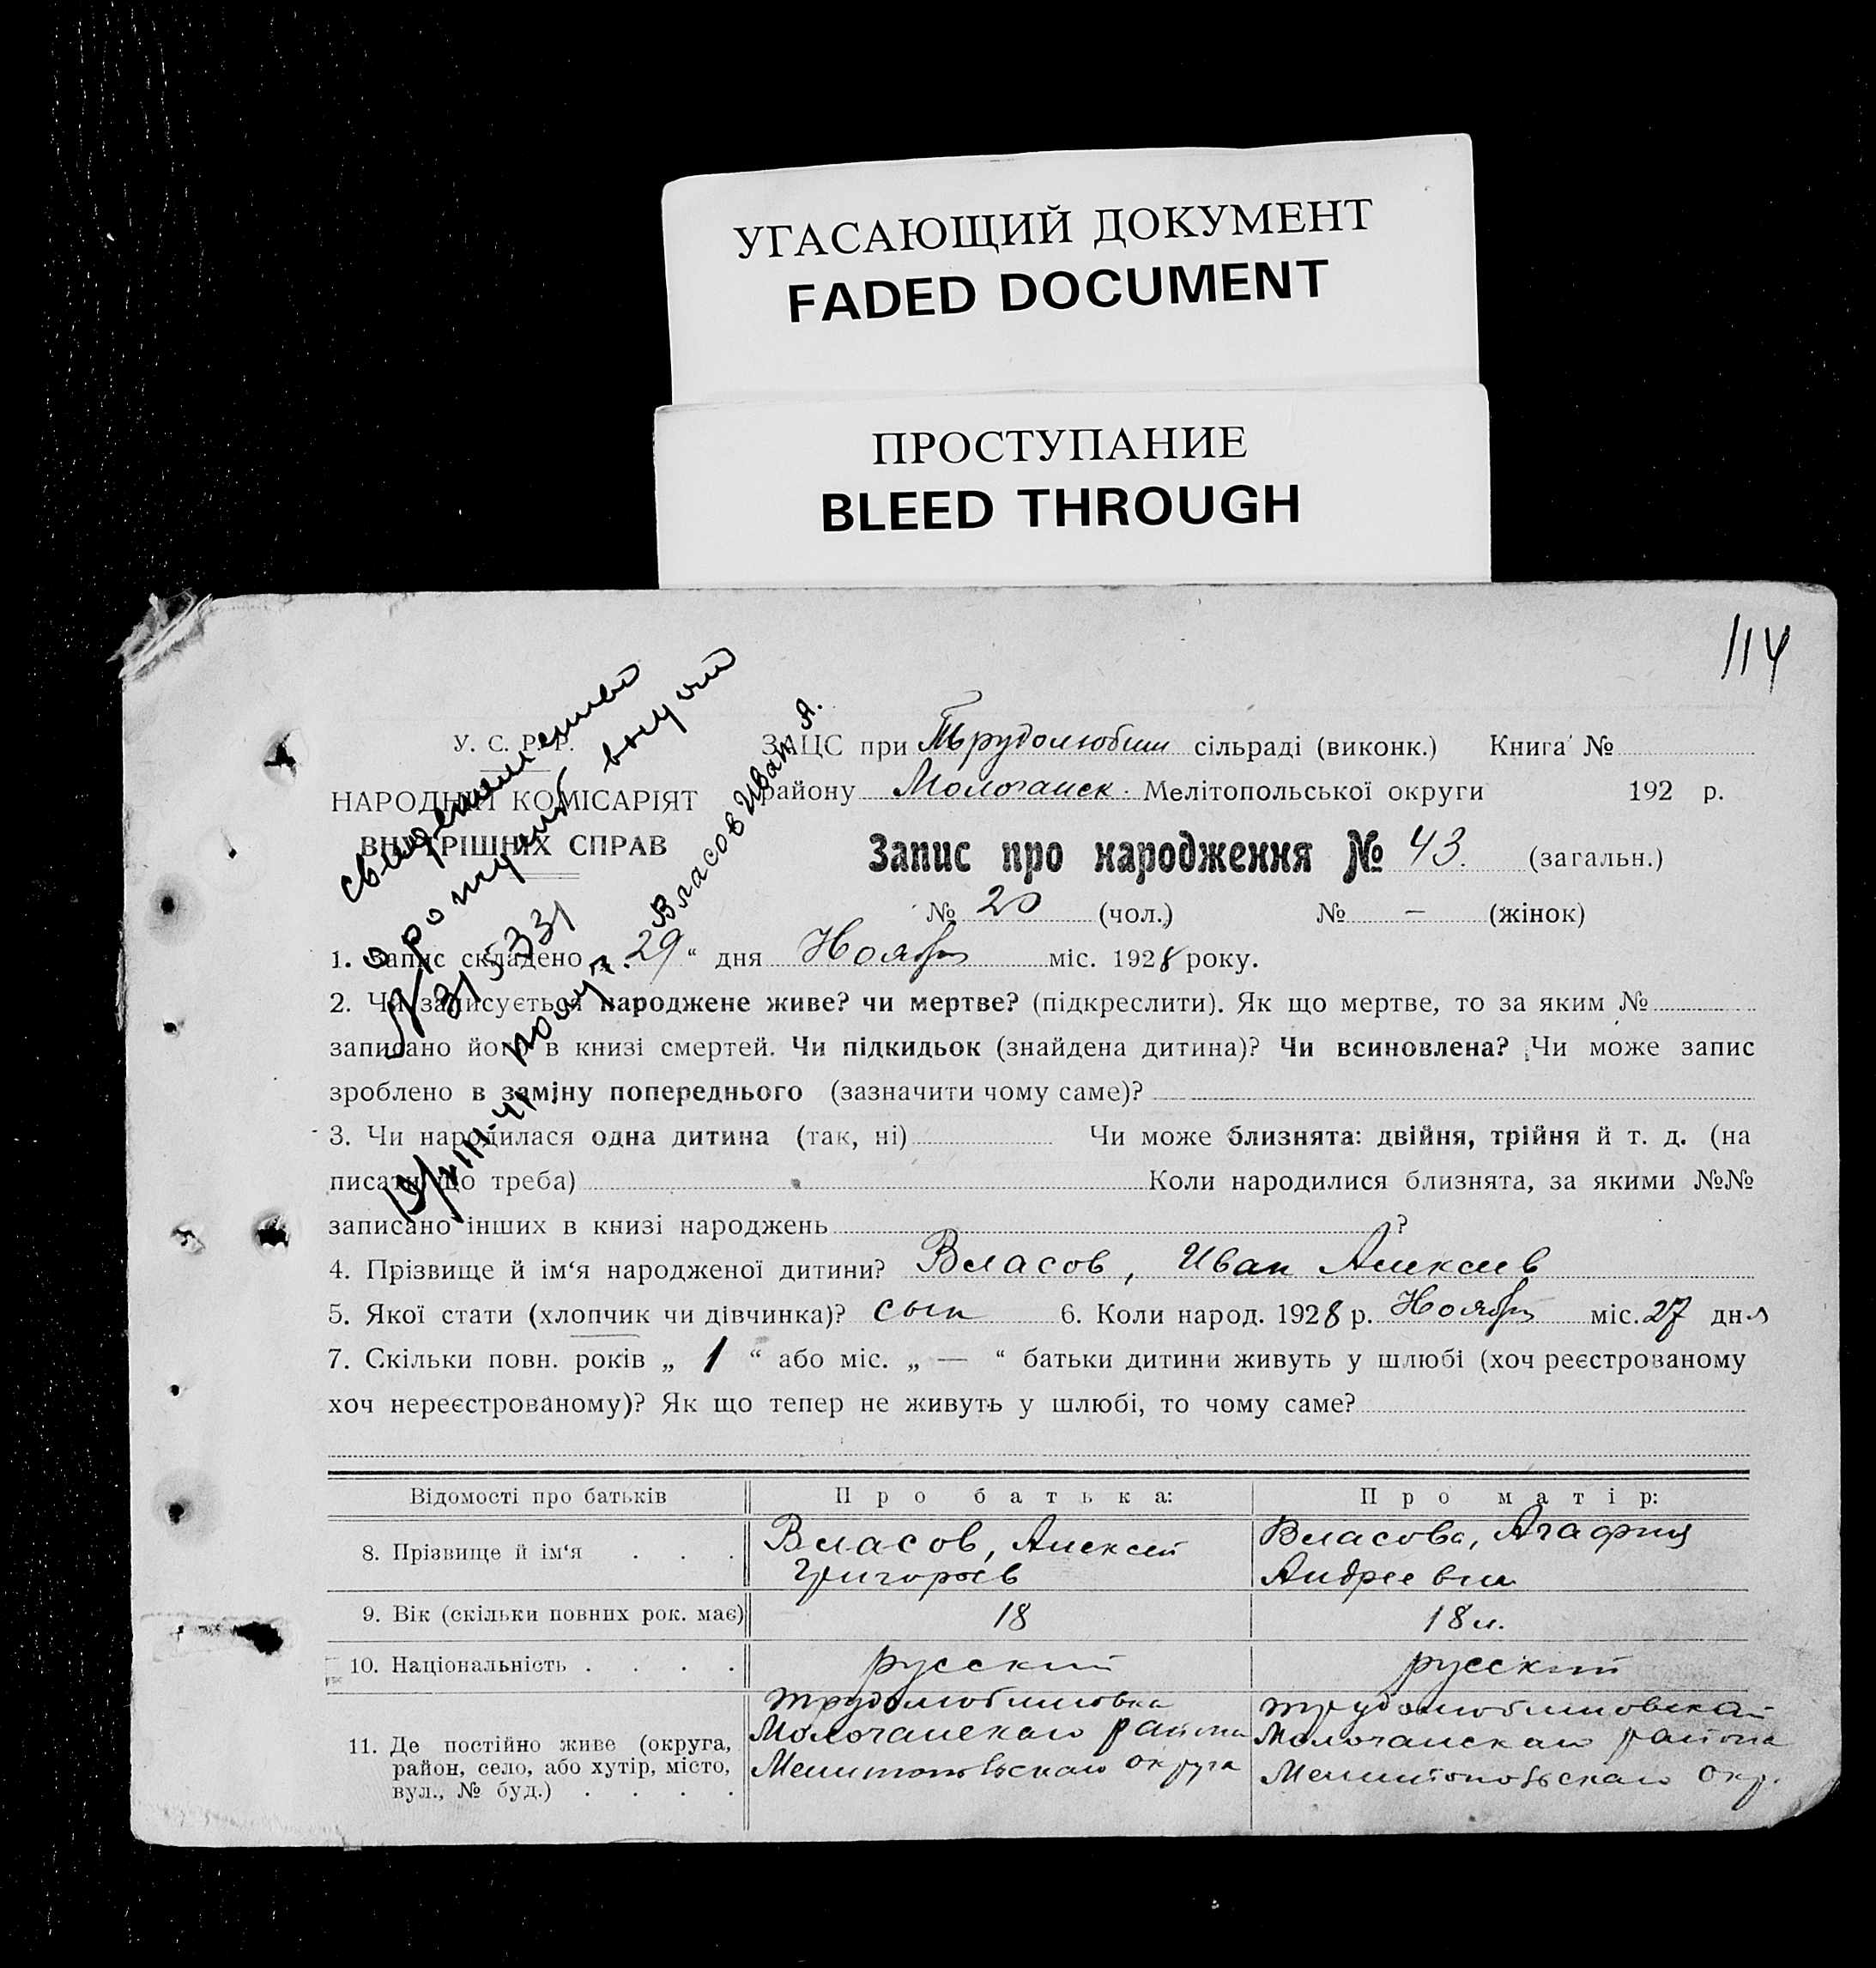 УГАСАЮЩИЙ ДОКУМЕНТ
FADED DOCUMENT
ПРОСТУПАНИЕ
BLEED THROUGH
114
свидетельство
выдано
315331
получ. Власов Иван А.
У. С. Р. Р.
НАРОДНІЙ КОМІСАРІЯТ
ВНУТРІШНІХ СПРАВ
ЗАЦС при Трудолюбим сільраді (виконк.) Книга №
району Молочанск. Мелітопольської округи 192 р.
Запис про народження № 43. (загальн.)
№ 20 (чол.) № — (жінок)
1. Запис складено „29“ дня Ноября міс. 1928 року.
2. Чи записується народжене живе? чи мертве? (підкреслити). Як що мертве, то за яким №
записано його в книзі смертей. Чи підкидьок (знайдена дитина)? Чи всиновлена? Чи може запис
зроблено в заміну попереднього (зазначити чому саме)?
3. Чи народилася одна дитина (так, ні) Чи може близнята: двійня, трійня й т. д. (на
писати що треба) Коли народилися близнята, за якими №№
записано інших в книзі народжень ?
4. Прізвище й ім‘я народженої дитини? Власов, Иван Алексеев
5. Якої стати (хлопчик чи дівчинка)? сын 6. Коли народ. 1928 р. Ноября міс. 27 дня
7. Скільки повн. років „ 1 “ або міс. „ — “ батьки дитини живуть у шлюбі (хоч реєстрованому
хоч нереєстрованому)? Як що тепер не живуть у шлюбі, то чому саме?
Відомості про батьків Про батька: Про матір:
8. Прізвище й ім‘я . . . Власов, Алексей Власова, Агафия
Григорьев Андреевна
9. Вік (скільки повних рок. має) 18 18 л.
10. Національність . . . . русский русский
Трудолюбимовка Трудолюбимовской
Молочанскаго района Молочанскаго района
11. Де постійно живе (округа, Мелитопольскаго округа Мелитопольскаго окр.
район, село, або хутір, місто,
вул., № буд.) . . . .